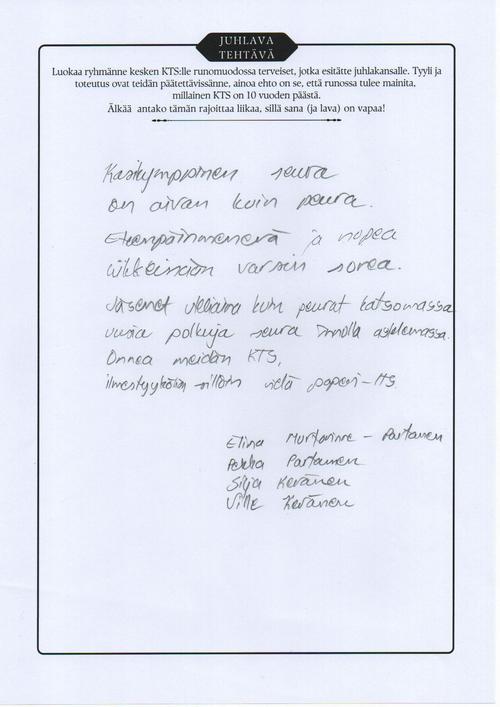 JUHLAVA
TEHTÄVÄ
Luokaa ryhmänne kesken KTS:lle runomuodossa terveiset, jotka esitätte juhlakansalle. Tyyli ja
toteutus ovat teidän päätettävissänne, ainoa ehto on se, että runossa tulee mainita,
millainen KTS on 10 vuoden päästä.
Älkää antako tämän rajoittaa liikaa, sillä sana (ja lava) on vapaa!
Kasikymppinen seura
on aivan kuin peura.
Eteenpäinmenevä ja nopea
liikkeissään varsin sorea.
Jäsenet villeinä kuin peurat katsomassa
uusia polkuja seura innolla astelemassa.
Onnea meidän KTS,
ilmestyyköhän silloin vielä paperi-HS.
Elina Murtovinne - Partanen
Pekka Partanen
Silja Keränen
Ville Keränen